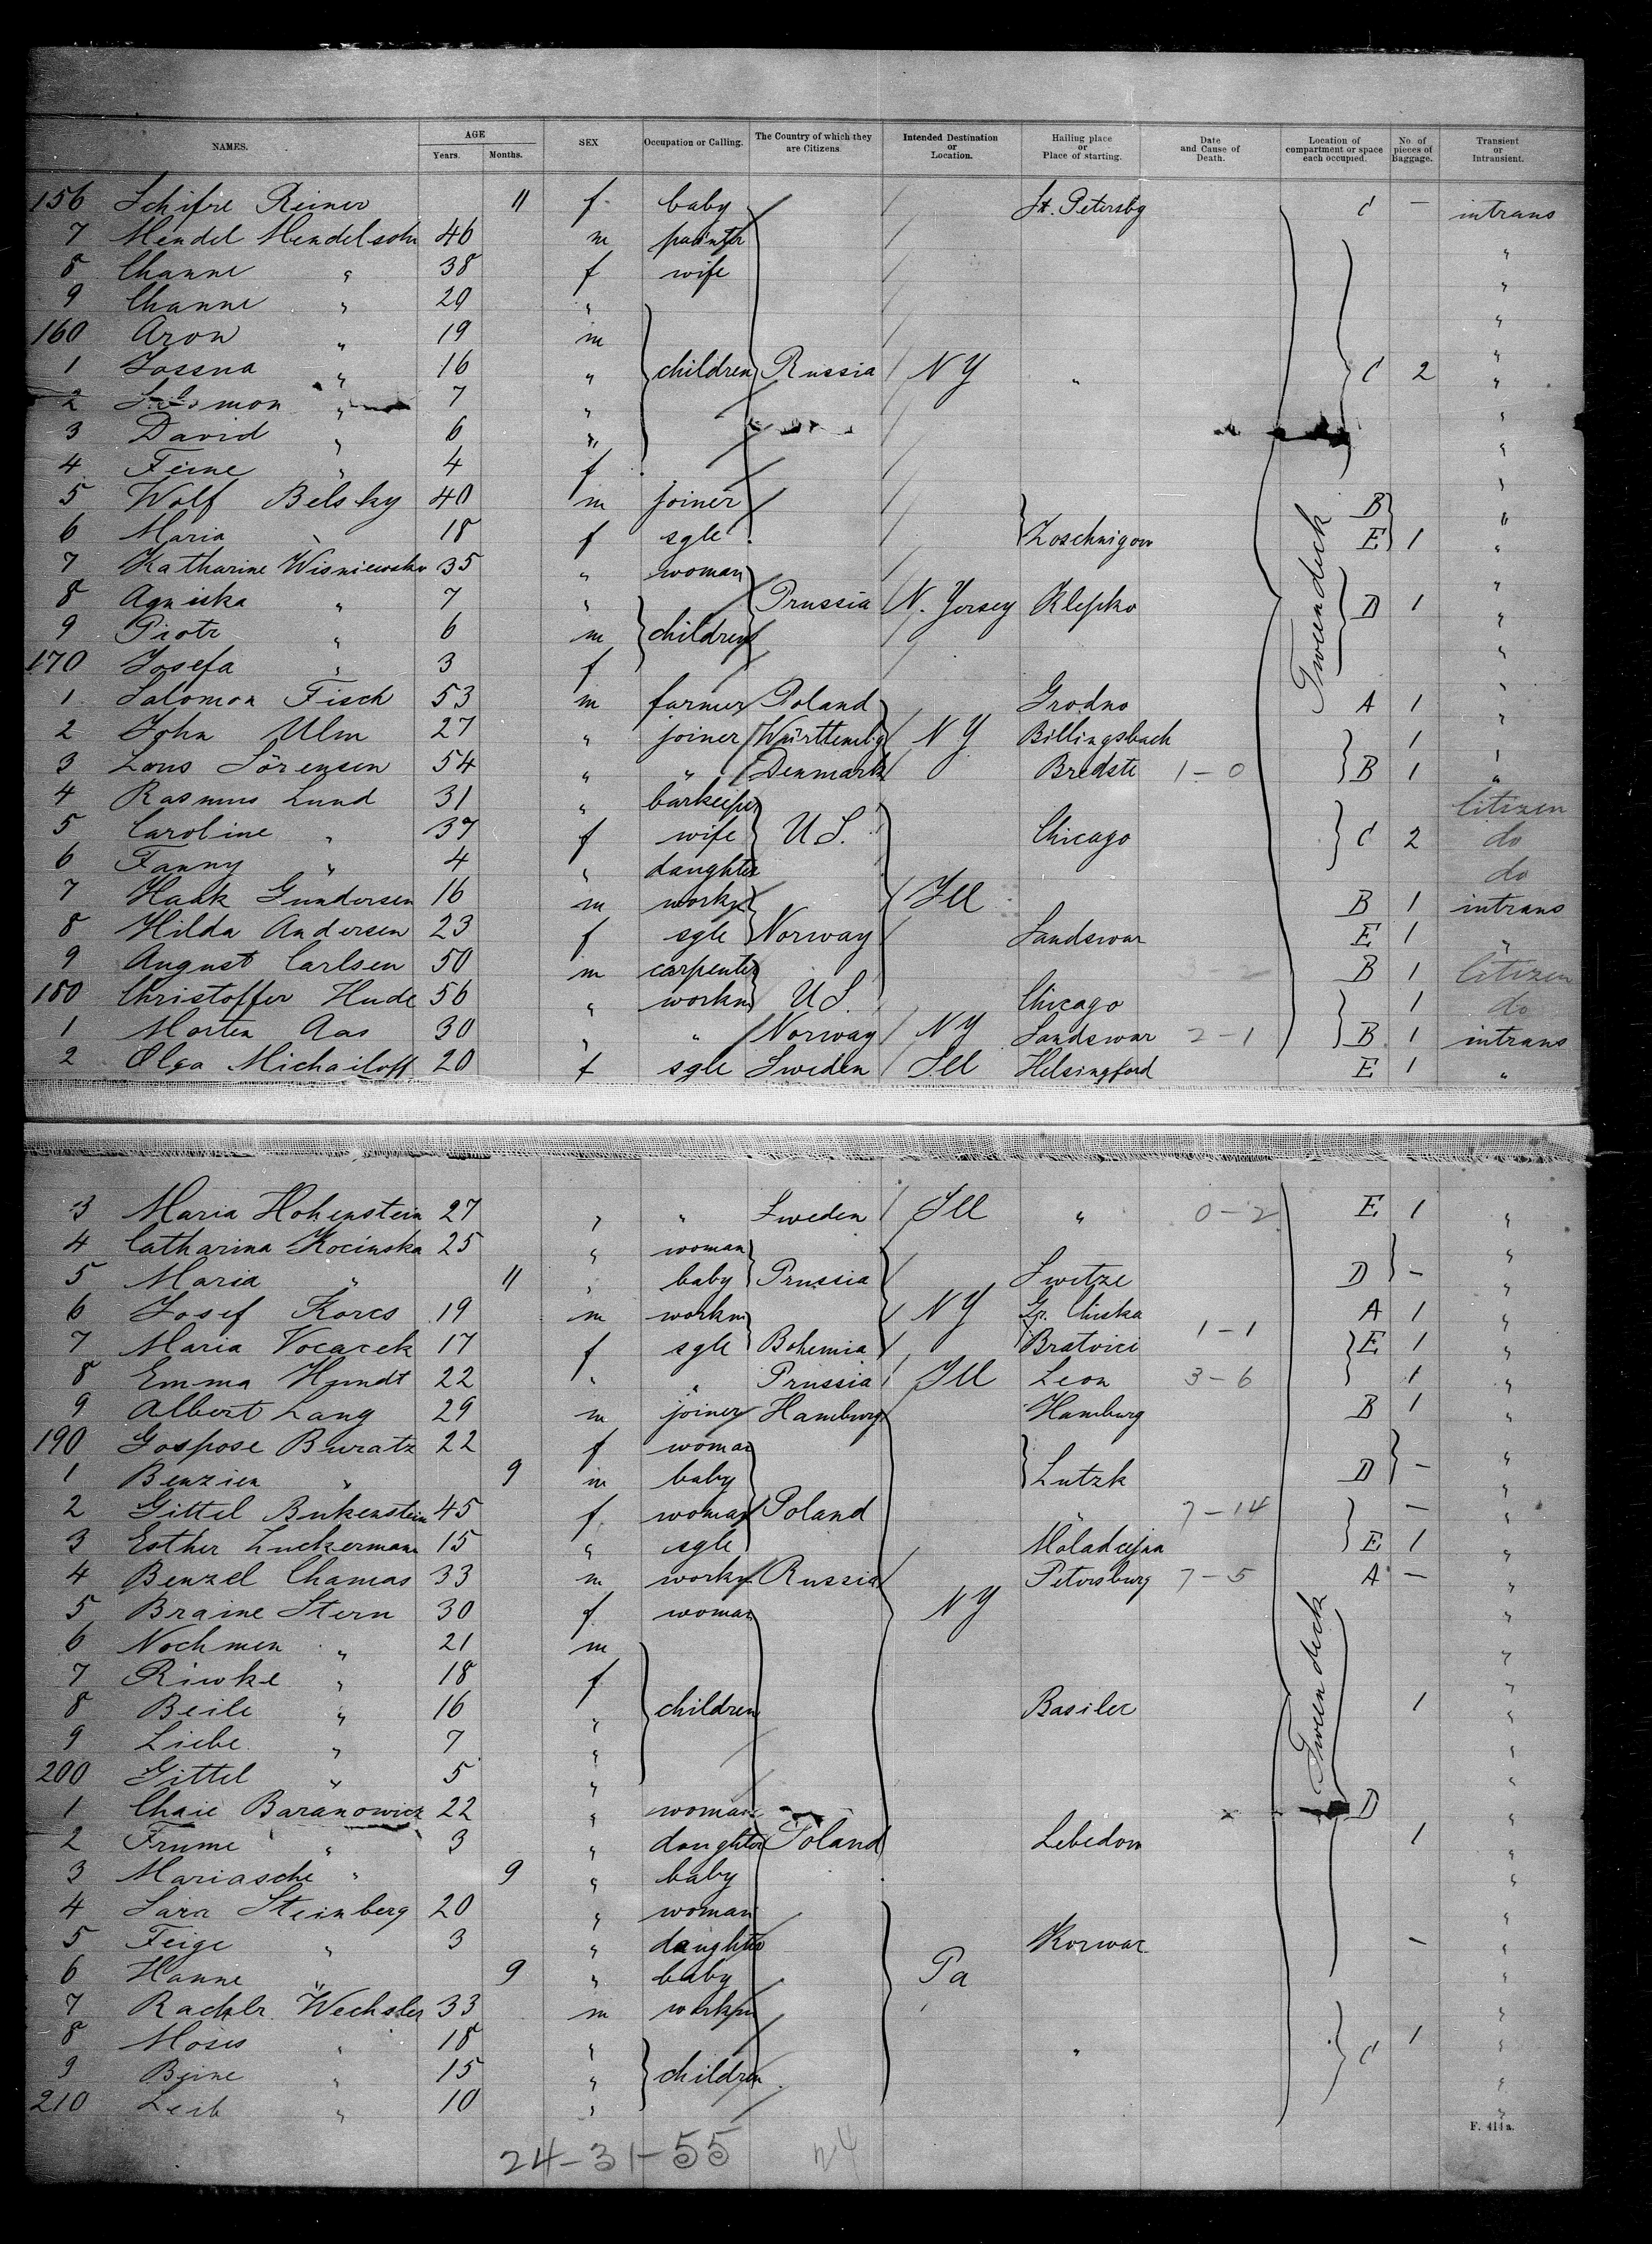 NAMES. AGE Years. Months. SEX Occupation or Calling. The Country of which they are Citizens. Intended Destination or Location. Hailing place or Place of starting. Date and Cause of Death. Location of compartment or space each occupied. No. of pieces of Baggage. Transient or Intransient.
156 Schifre Reiner 11 f baby St. Petersbg C — intrans
7 Mendel Mendelsohn 46 m painter "
8 Channe " 38 f wife "
9 Channe " 20 " "
160 Aron " 19 m "
1 Jossna " 16 " children Russia NY " C 2 "
2 Salomon " 7 " "
3 David " 6 " "
4 Feine " 4 f "
5 Wolf Belsky 40 m joiner B "
6 Maria " 18 f sgle Zoschnigow E 1 "
7 Katharine Wisniewska 35 " woman "
8 Agniska " 7 " Prussia N. Jersey Klepko D 1 "
9 Piotr " 6 m children "
170 Josefa " 3 f "
1 Salomon Fisch 53 m farmer Poland Grodno A 1 "
2 John Ulm 27 " joiner Württembg NY Billingsbach 1 "
3 Lons Sörensen 54 " " Denmark Bredste 1-0 B 1 "
4 Rasmus Lund 31 " barkeeper Citizen
5 Caroline " 37 f wife U.S. Chicago C 2 do
6 Fanny " 4 " daughter do
7 Haak Gundersen 16 m workm Ill B 1 intrans
8 Hilda Andersen 23 f sgle Norway Landswar E 1 "
9 August Carlsen 50 m carpenter B 1 Citizen
180 Christoffer Hude 56 " workm U.S. Chicago 1 do
1 Morten Aas 30 " " Norway NY Landswar 2-1 B 1 intrans
2 Olga Michailoff 20 f sgle Sweden Ill Helsingford E 1 "
3 Maria Hohenstein 27 " " Sweden Ill " 0-2 E 1 "
4 Catharina Kocinska 25 " woman "
5 Maria " 11 " baby Prussia Switze D — "
6 Josef Korcs 19 m workm NY Gr. Chiska A 1 "
7 Maria Vocacek 17 f sgle Bohemia Bratvici 1-1 E 1 "
8 Emma Hundt 22 " " Prussia Ill Leon 3-6 1 "
9 Albert Lang 29 m joiner Hamburg Hamburg B 1 "
190 Gospose Buratz 22 f woman "
1 Benzien " 9 m baby Lutzk D — "
2 Gittel Bukenstein 45 f woman Poland " 7-14 — "
3 Esther Zuckermann 15 " sgle Moladcejna E 1 "
4 Benzel Chamas 33 m workm Russia Petersburg 7-5 A — "
5 Braine Stern 30 f woman NY "
6 Nochmen " 21 m "
7 Riwke " 18 f "
8 Beile " 16 " children Basiler 1 "
9 Liebe " 7 " "
200 Gittel " 5 " "
1 Chaie Baranowicz 22 " woman D "
2 Frume " 3 " daughter Poland Lebedow 1 "
3 Mariasche " 9 " baby "
4 Sara Steinberg 20 " woman "
5 Feige " 3 " daughter Korwac — "
6 Hanne " 9 " baby Pa "
7 Wechsler 33 m workm "
8 Moses " 18 " " 1 "
9 Beine " 15 " children C "
210 Leib " 10 " "
Tweendeck
Tweendeck
F. 414a.
24-31-55 24